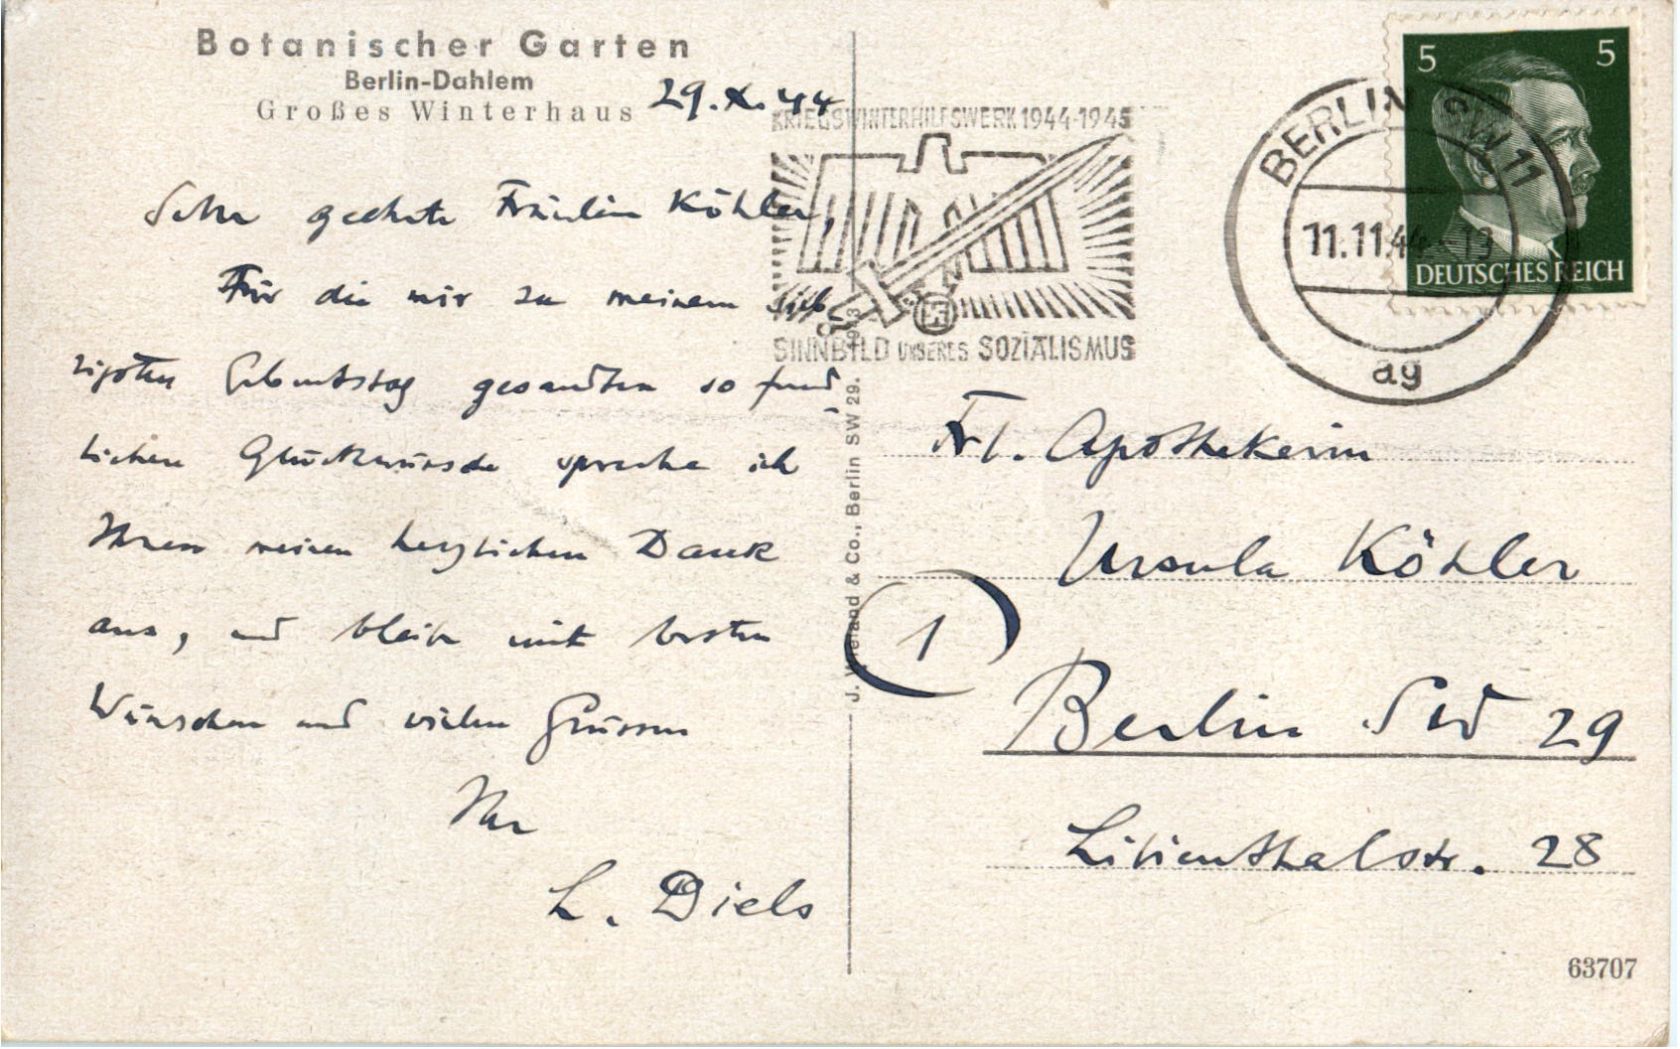 Botanischer Garten
Berlin-Dahlem
Großes Winterhaus
29.X.44
Sehr geehrte Fräulein Köhler,
Für die mir zu meinem sieb-
zigsten Geburtstag gesandten so freund-
lichen Glückwünsche spreche ich
Ihnen meinen herzlichen Dank
aus, und bleibe mit besten
Wünschen und vielen Grüssen
Ihr
L. Diels
KRIEGSWINTERHILFSWERK 1944-1945
SINNBILD UNSERES SOZIALISMUS
BERLIN SW 11
11.11.44 - 13
ag
5 5
DEUTSCHES REICH
J. Wieland & Co., Berlin SW 29.
Frl. Apothekerin
Ursula Köhler
1
Berlin SW 29
Lilienthalstr. 28
63707